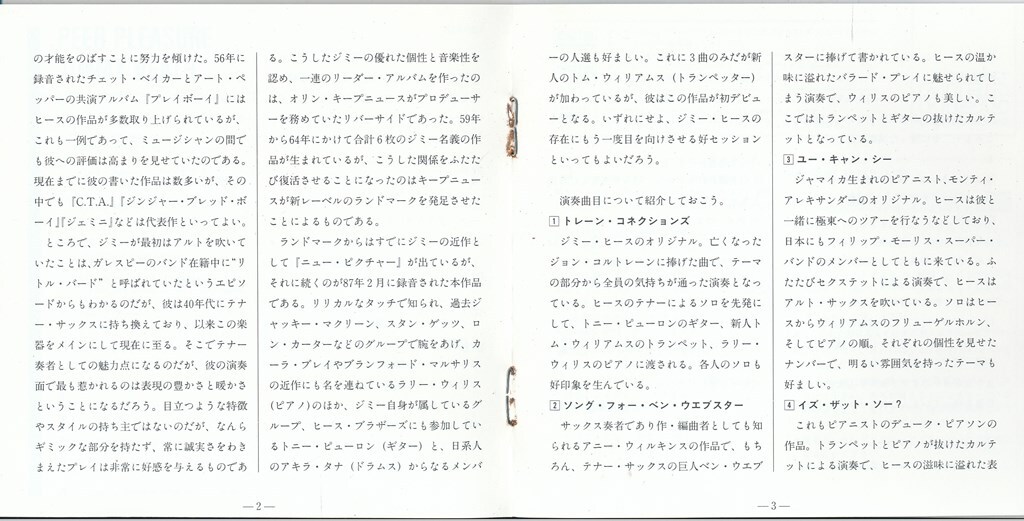 の才能をのばすことに努力を傾けた。56年に
録音されたチェット・ベイカーとアート・ペ
ッパーの共演アルバム『プレイボーイ』には
ヒースの作品が多数取り上げられているが、
これも一例であって、ミュージシャンの間で
も彼への評価は高まりを見せていたのである。
現在までに彼の書いた作品は数多いが、その
中でも『C.T.A.』『ジンジャー・ブレッド・ボ
ーイ』『ジェミニ』などは代表作といってよい。
ところで、ジミーが最初はアルトを吹いて
いたことは、ガレスピーのバンド在籍中に“リ
トル・バード”と呼ばれていたというエピソ
ードからもわかるのだが、彼は40年代にテナ
ー・サックスに持ち換えており、以来この楽
器をメインにして現在に至る。そこでテナー
奏者としての魅力点になるのだが、彼の演奏
面で最も惹かれるのは表現の豊かさと暖かさ
ということになるだろう。目立つような特徴
やスタイルの持ち主ではないのだが、なんら
ギミックな部分を持たず、常に誠実さをわき
まえたプレイは非常に好感を与えるものであ
る。こうしたジミーの優れた個性と音楽性を
認め、一連のリーダー・アルバムを作ったの
は、オリン・キープニュースがプロデューサ
ーを務めていたリバーサイドであった。59年
から64年にかけて合計6枚のジミー名義の作
品が生まれているが、こうした関係をふたた
び復活させることになったのはキープニュー
スが新レーベルのランドマークを発足させた
ことによるものである。
ランドマークからはすでにジミーの近作と
して『ニュー・ピクチャー』が出ているが、
それに続くのが87年2月に録音された本作品
である。リリカルなタッチで知られ、過去ジ
ャッキー・マクリーン、スタン・ゲッツ、ロ
ン・カーターなどのグループで腕をあげ、カ
ーラ・ブレイやブランフォード・マルサリス
の近作にも名を連ねているラリー・ウィリス
(ピアノ)のほか、ジミー自身が属しているグ
ループ、ヒース・ブラザーズにも参加してい
るトニー・ピューロン（ギター）と、日系人
のアキラ・タナ（ドラムス）からなるメンバ
—2—
ーの人選も好ましい。これに3曲のみだが新
人のトム・ウィリアムス（トランペッター）
が加わっているが、彼はこの作品が初デビュ
ーとなる。いずれにせよ、ジミー・ヒースの
存在にもう一度目を向けさせる好セッション
といってもよいだろう。
演奏曲目について紹介しておこう。
1 トレーン・コネクションズ
ジミー・ヒースのオリジナル。亡くなった
ジョン・コルトレーンに捧げた曲で、テーマ
の部分から全員の気持ちが通った演奏となっ
ている。ヒースのテナーによるソロを先発に
して、トニー・ピューロンのギター、新人ト
ム・ウィリアムスのトランペット、ラリー・
ウィリスのピアノに渡される。各人のソロも
好印象を生んでいる。
2 ソング・フォー・ベン・ウエブスター
サックス奏者であり作・編曲者としても知
られるアニー・ウィルキンスの作品で、もち
ろん、テナー・サックスの巨人ベン・ウエブ
スターに捧げて書かれている。ヒースの温か
味に溢れたバラード・プレイに魅せられてし
まう演奏で、ウィリスのピアノも美しい。こ
こではトランペットとギターの抜けたカルテ
ットとなっている。
3 ユー・キャン・シー
ジャマイカ生まれのピアニスト、モンティ・
アレキサンダーのオリジナル。ヒースは彼と
一緒に極東へのツアーを行なうなどしており、
日本にもフィリップ・モーリス・スーパー・
バンドのメンバーとしてともに来ている。ふ
たたびセクステットによる演奏で、ヒースは
アルト・サックスを吹いている。ソロはヒー
スからウィリアムスのフリューゲルホルン、
そしてピアノの順。それぞれの個性を見せた
ナンバーで、明るい雰囲気を持ったテーマも
好ましい。
4 イズ・ザット・ソー？
これもピアニストのデューク・ピアソンの
作品。トランペットとピアノが抜けたカルテ
ットによる演奏で、ヒースの滋味に溢れた表
—3—